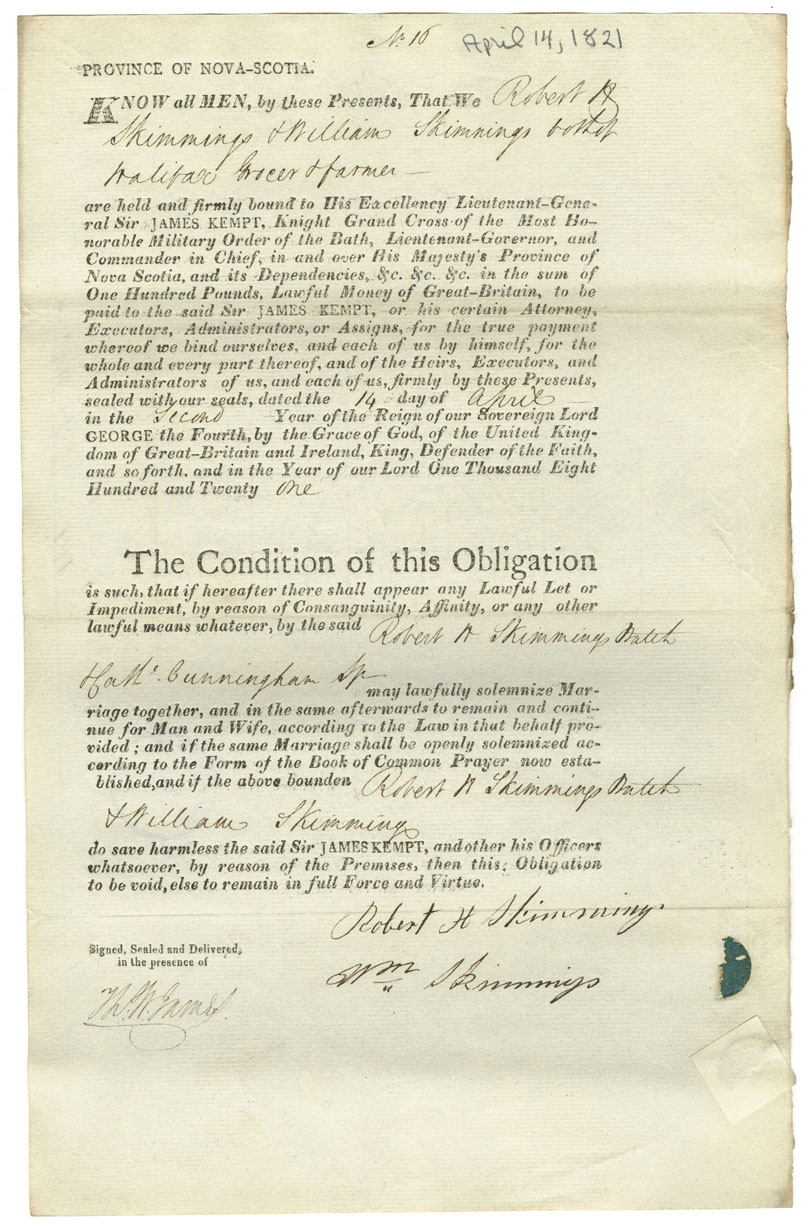 No 16 April 14, 1821
PROVINCE OF NOVA-SCOTIA.
KNOW all MEN, by these Presents, That We Robert H
Skimmings & William Skimmings both of
Halifax Grocer & farmer —
are held and firmly bound to His Excellency Lieutenant-Gene-
ral Sir JAMES KEMPT, Knight Grand Cross of the Most Ho-
norable Military Order of the Bath, Lieutenant-Governor, and
Commander in Chief, in and over His Majesty's Province of
Nova Scotia, and its Dependencies, &c. &c. &c. in the sum of
One Hundred Pounds, Lawful Money of Great-Britain, to be
paid to the said Sir JAMES KEMPT, or his certain Attorney,
Executors, Administrators, or Assigns, for the true payment
whereof we bind ourselves, and each of us by himself, for the
whole and every part thereof, and of the Heirs, Executors, and
Administrators of us, and each of us, firmly by these Presents,
sealed with our seals, dated the 14 day of April
in the Second Year of the Reign of our Sovereign Lord
GEORGE the Fourth, by the Grace of God, of the United King-
dom of Great-Britain and Ireland, King, Defender of the Faith,
and so forth, and in the Year of our Lord One Thousand Eight
Hundred and Twenty one
The Condition of this Obligation
is such, that if hereafter there shall appear any Lawful Let or
Impediment, by reason of Consanguinity, Affinity, or any other
lawful means whatever, by the said Robert H Skimmings Batch
& Cath. Cunningham Sp
may lawfully solemnize Mar-
riage together, and in the same afterwards to remain and conti-
nue for Man and Wife, according to the Law in that behalf pro-
vided; and if the same Marriage shall be openly solemnized ac-
cording to the Form of the Book of Common Prayer now esta-
blished, and if the above bounden Robert H Skimmings Batch
& William Skimmings
do save harmless the said Sir JAMES KEMPT, and other his Officers
whatsoever, by reason of the Premises, then this Obligation
to be void, else to remain in full Force and Virtue.
Robert H Skimmings
Signed, Sealed and Delivered,
in the presence of
Wm Skimmings
Th. W. James